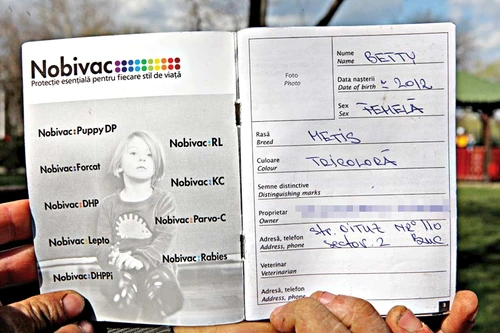 Nobivac
Protecție esențială pentru fiecare stil de viață
Nobivac:Puppy DP
Nobivac:RL
Nobivac:Forcat
Nobivac:KC
Nobivac:DHP
Nobivac:Parvo-C
Nobivac:Lepto
Nobivac:Rabies
Nobivac:DHPPi
Foto
Photo
Nume BETTY
Name
Data nașterii 2012
Date of birth
Sex FEMELĂ
Sex
Rasă METIS
Breed
Culoare TRICOLORĂ
Colour
Semne distinctive
Distinguishing marks
Proprietar
Owner
Adresă, telefon str. OITUZ NR° 110
Address, phone sector 2 BUC
Veterinar
Veterinarian
Adresă, telefon
Address, phone
3